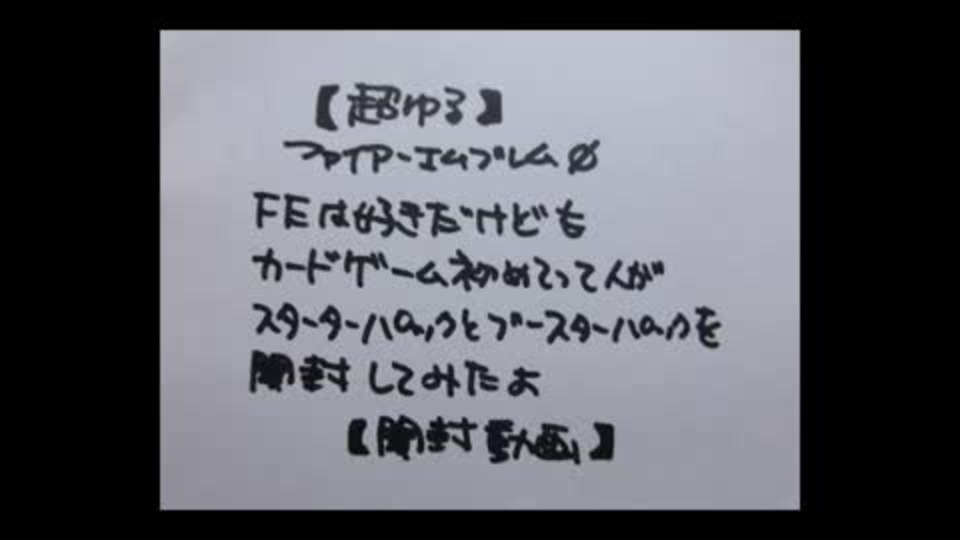 【超ゆる】
ファイアーエムブレム0
FEは好きだけども
カードゲーム初めてって人が
スターターパックとブースターパックを
開封してみたよ
【開封動画】